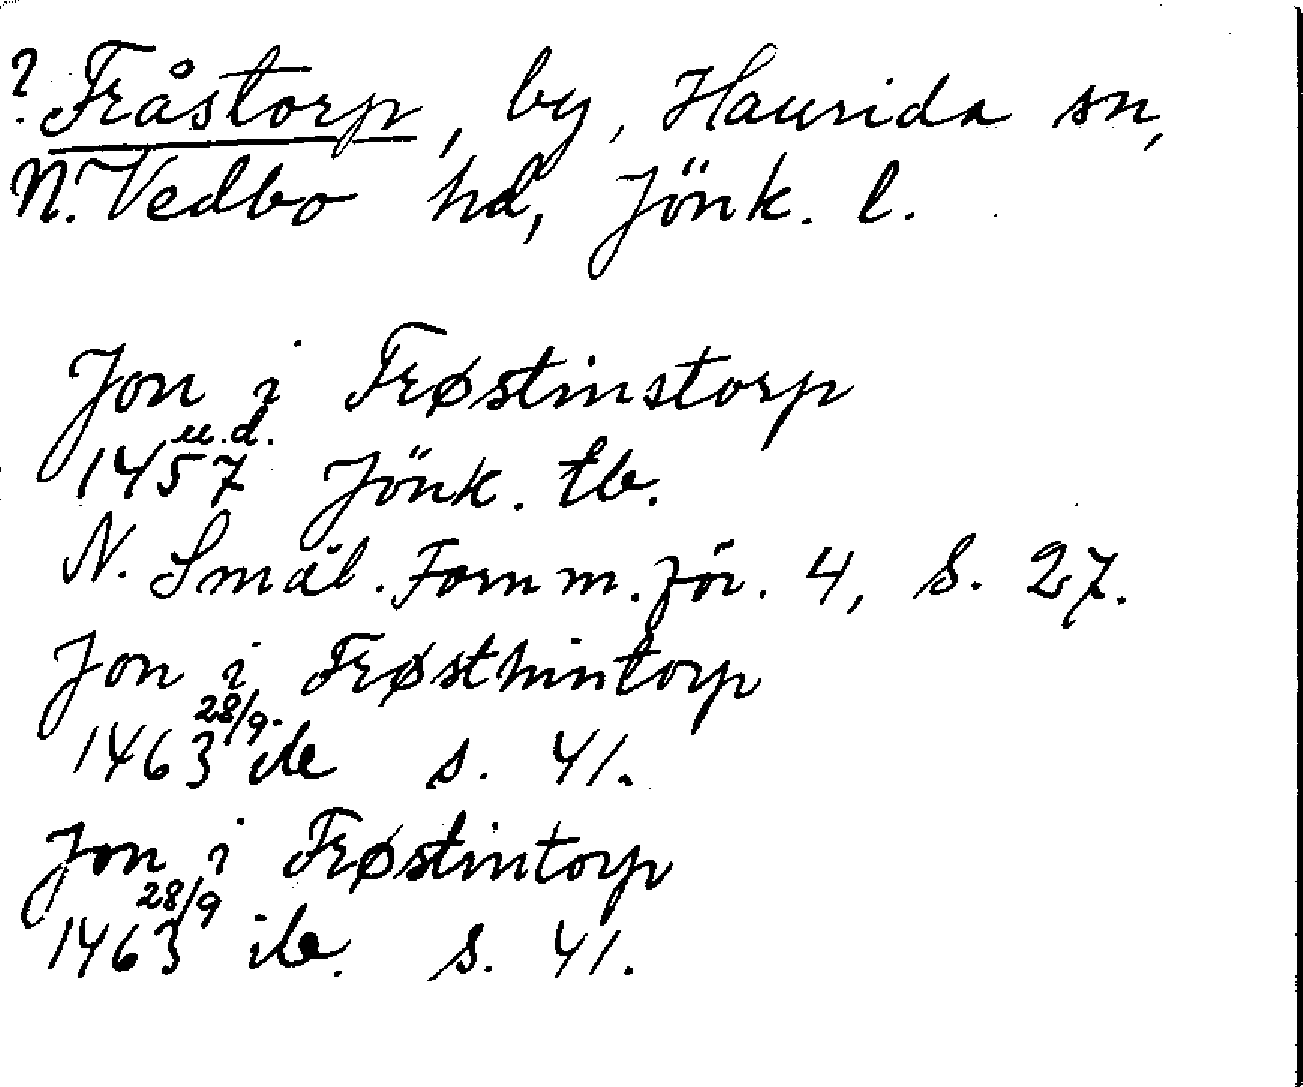 ? Fråstorp, by, Haurida sn,
N. Vedbo hd, Jönk. l.
Jon i Frøstinstorp
1457 u.d. Jönk. tb.
N. Smål. Fornm.för. 4, s. 27.
Jon i Frøsthintorp
1463 28/9. ib s. 41.
Jon i Frøstintorp
1463 28/9 ib. s. 41.